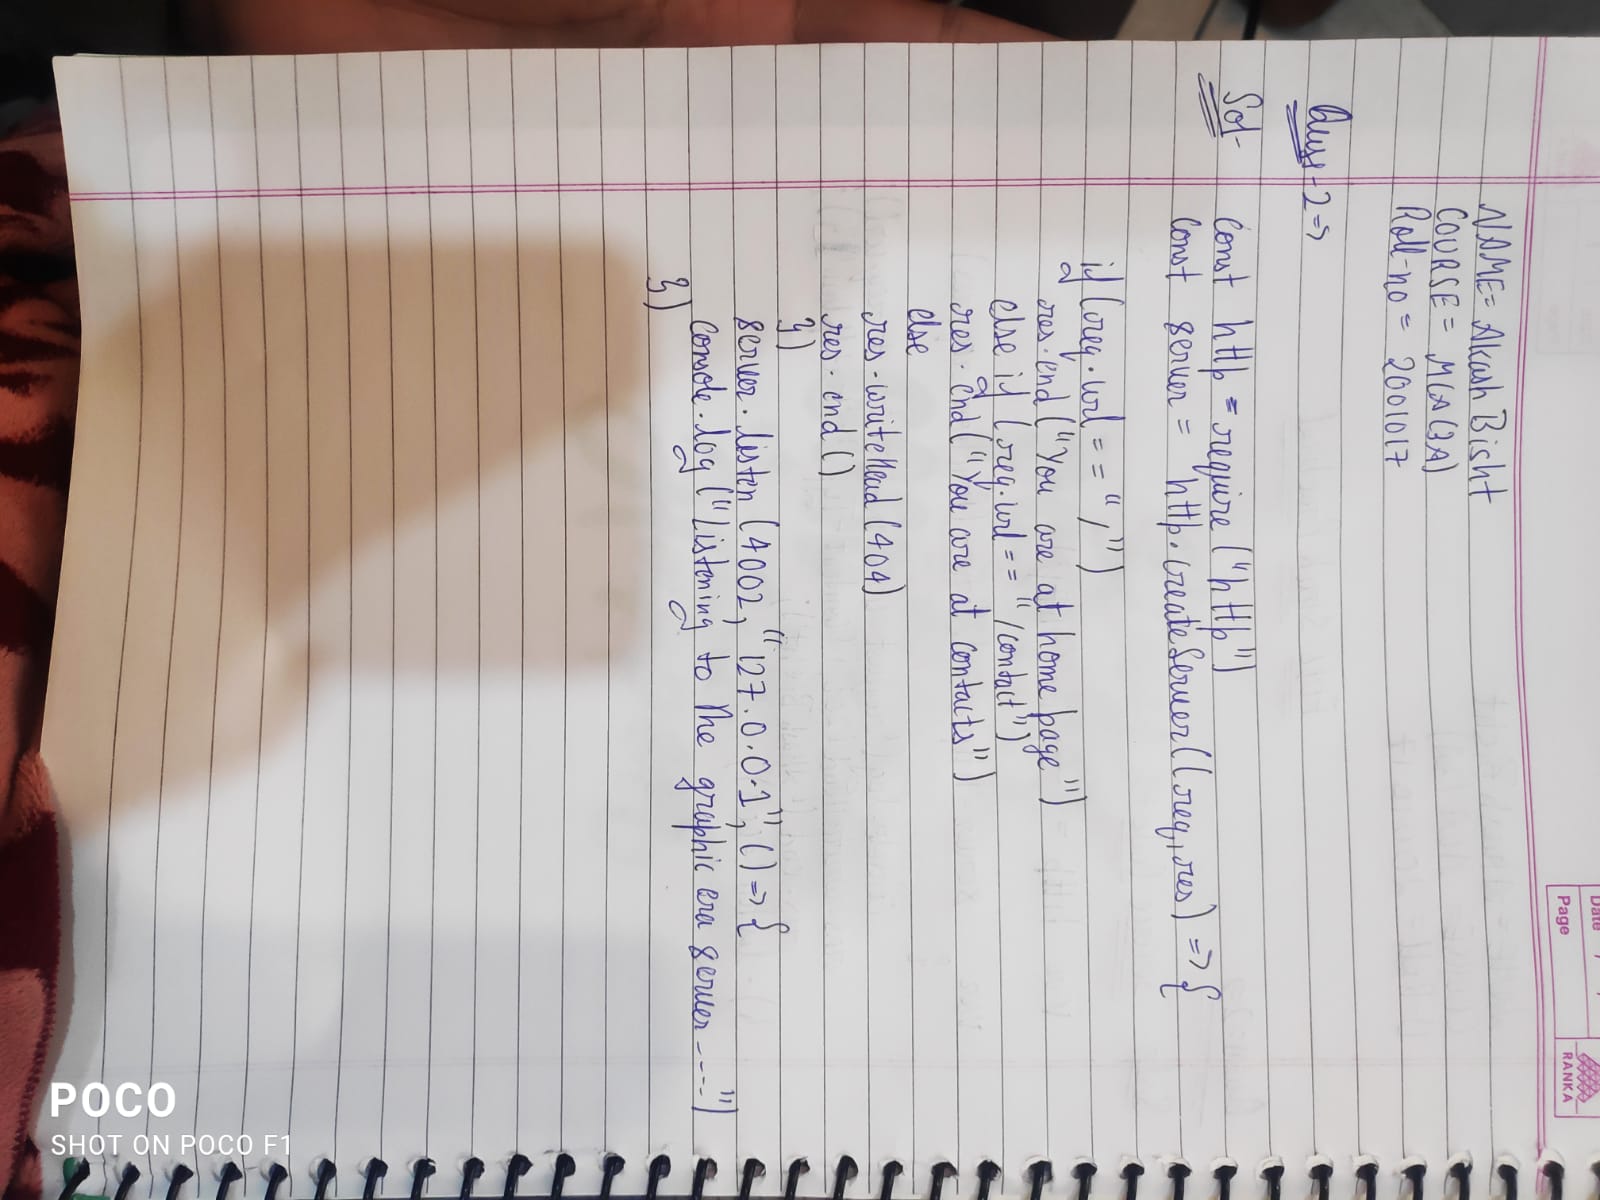 Date
Page
RANKA
NAME = Akash Bisht
COURSE = MCA (3A)
Roll-no = 2001017
Ques-2 =>
Sol-
Const http = require ("http")
Const server = http.createServer((req, res) => {
if (req.url == "/")
res.end ("You are at home page")
else if (req.url == "/contact")
res.end ("You are at contacts")
else
res.writeHead (404)
res.end ()
})
server.listen (4002, "127.0.0.1", () => {
Console.log ("Listening to the graphic era server ----")
})
POCO
SHOT ON POCO F1